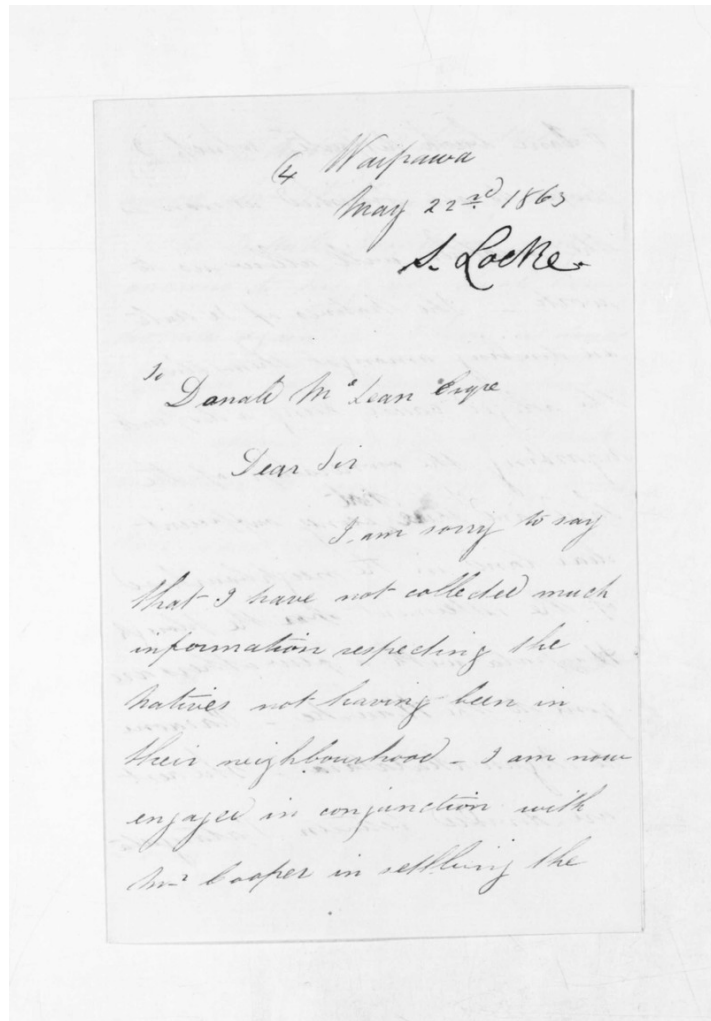 (4 Waipawa
May 22nd 1863
S. Locke
To
Donald McLean Esqre
Dear Sir
I am sorry to say
that I have not collected much
information respecting the
natives not having been in
their neighbourhood - I am now
engaged in conjunction with
Mr Cooper in settling the